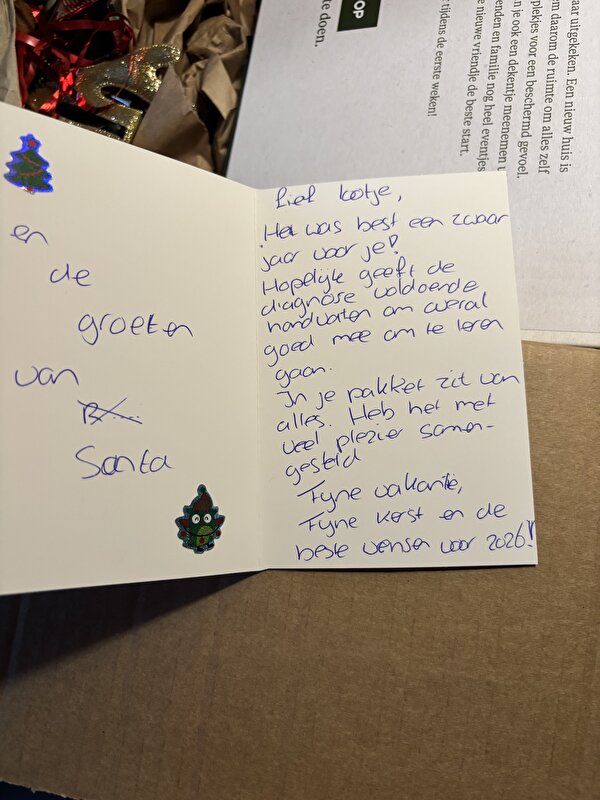 OP
te doen.
tijdens de eerste weken!
aar uitgekeken. Een nieuw huis is
em daarom de ruimte om alles zelf
plekjes voor een beschermd gevoel.
n je ook een dekentje meenemen
enden en familie nog heel eventjes
e nieuwe vriendje de beste start.
en
de
groeten
van
Santa
Lief lootje,
Het was best een zwaar
jaar voor je!
Hopelijk geeft de
diagnose voldoende
handvaten om overal
goed mee om te leren
gaan.
In je pakket zit van
alles. Heb het met
veel plezier samen-
gesteld
Fijne vakantie,
Fijne kerst en de
beste wensen voor 2026!